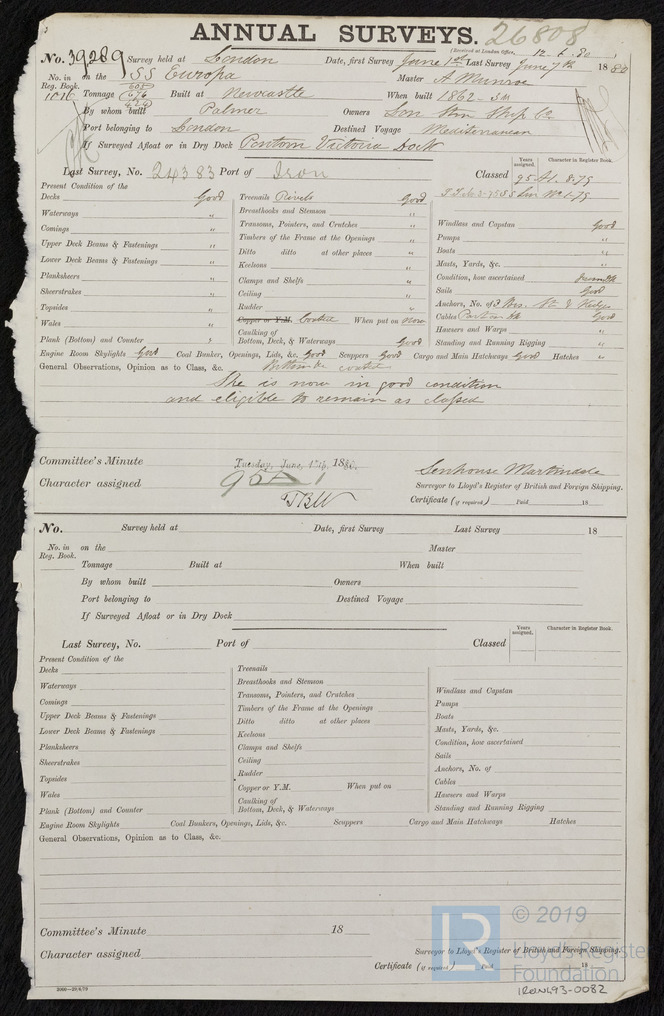 ANNUAL SURVEYS. 26808
(Received at London Office, 12-6-80
No. 39289 Survey held at London Date, first Survey June 1st Last Survey June 7th 1880
No. in Reg. Book. on the SS Europa Master A Munroe
1016 Tonnage Built at Newcastle When built 1862
By whom built Palmer Owners Lon Stm Ship Co
Port belonging to London Destined Voyage Mediterranean
If Surveyed Afloat or in Dry Dock Pontoon Victoria Dock
Last Survey, No. 24383 Port of Iron Classed Years assigned. Character in Register Book.
95 A1. 8.79
Present Condition of the
Decks Good Treenails Rivets Good
Waterways " Breasthooks and Stemson " Windlass and Capstan Good
Comings " Transoms, Pointers, and Crutches " Pumps "
Upper Deck Beams & Fastenings " Timbers of the Frame at the Openings " Boats "
Lower Deck Beams & Fastenings " Ditto ditto at other places " Masts, Yards, &c. "
Planksheers " Keelsons " Condition, how ascertained
Sheerstrakes " Clamps and Shelfs " Sails Good
Topsides " Ceiling " Anchors, No. of 3
Wales " Rudder " Cables Good
Copper or Y.M. Coated When put on now Hawsers and Warps "
Plank (Bottom) and Counter " Caulking of Bottom, Deck, & Waterways Good Standing and Running Rigging "
Engine Room Skylights Good Coal Bunker, Openings, Lids, &c. Good Scuppers Good Cargo and Main Hatchways Good Hatches "
General Observations, Opinion as to Class, &c. coated
She is now in good condition
and eligible to remain as classed
Committee's Minute Tuesday, June, 15th, 1880.
Character assigned 95 A 1
Senhouse Martindale
Surveyor to Lloyd's Register of British and Foreign Shipping.
Certificate (if required) Paid 18
No. Survey held at Date, first Survey Last Survey 18
No. in Reg. Book. on the Master
Tonnage Built at When built
By whom built Owners
Port belonging to Destined Voyage
If Surveyed Afloat or in Dry Dock
Last Survey, No. Port of Classed Years assigned. Character in Register Book.
Present Condition of the
Decks Treenails
Waterways Breasthooks and Stemson Windlass and Capstan
Comings Transoms, Pointers, and Crutches Pumps
Upper Deck Beams & Fastenings Timbers of the Frame at the Openings Boats
Lower Deck Beams & Fastenings Ditto ditto at other places Masts, Yards, &c.
Planksheers Keelsons Condition, how ascertained
Sheerstrakes Clamps and Shelfs Sails
Topsides Ceiling Anchors, No. of
Wales Rudder Cables
Copper or Y.M. When put on Hawsers and Warps
Plank (Bottom) and Counter Caulking of Bottom, Deck, & Waterways Standing and Running Rigging
Engine Room Skylights Coal Bunkers, Openings, Lids, &c. Scuppers Cargo and Main Hatchways Hatches
General Observations, Opinion as to Class, &c.
Committee's Minute 18
Character assigned Surveyor to Lloyd's Register of British and Foreign Shipping.
Certificate (if required) Paid 18
LR © 2019
Lloyd's Register
Foundation
IRON493-0082